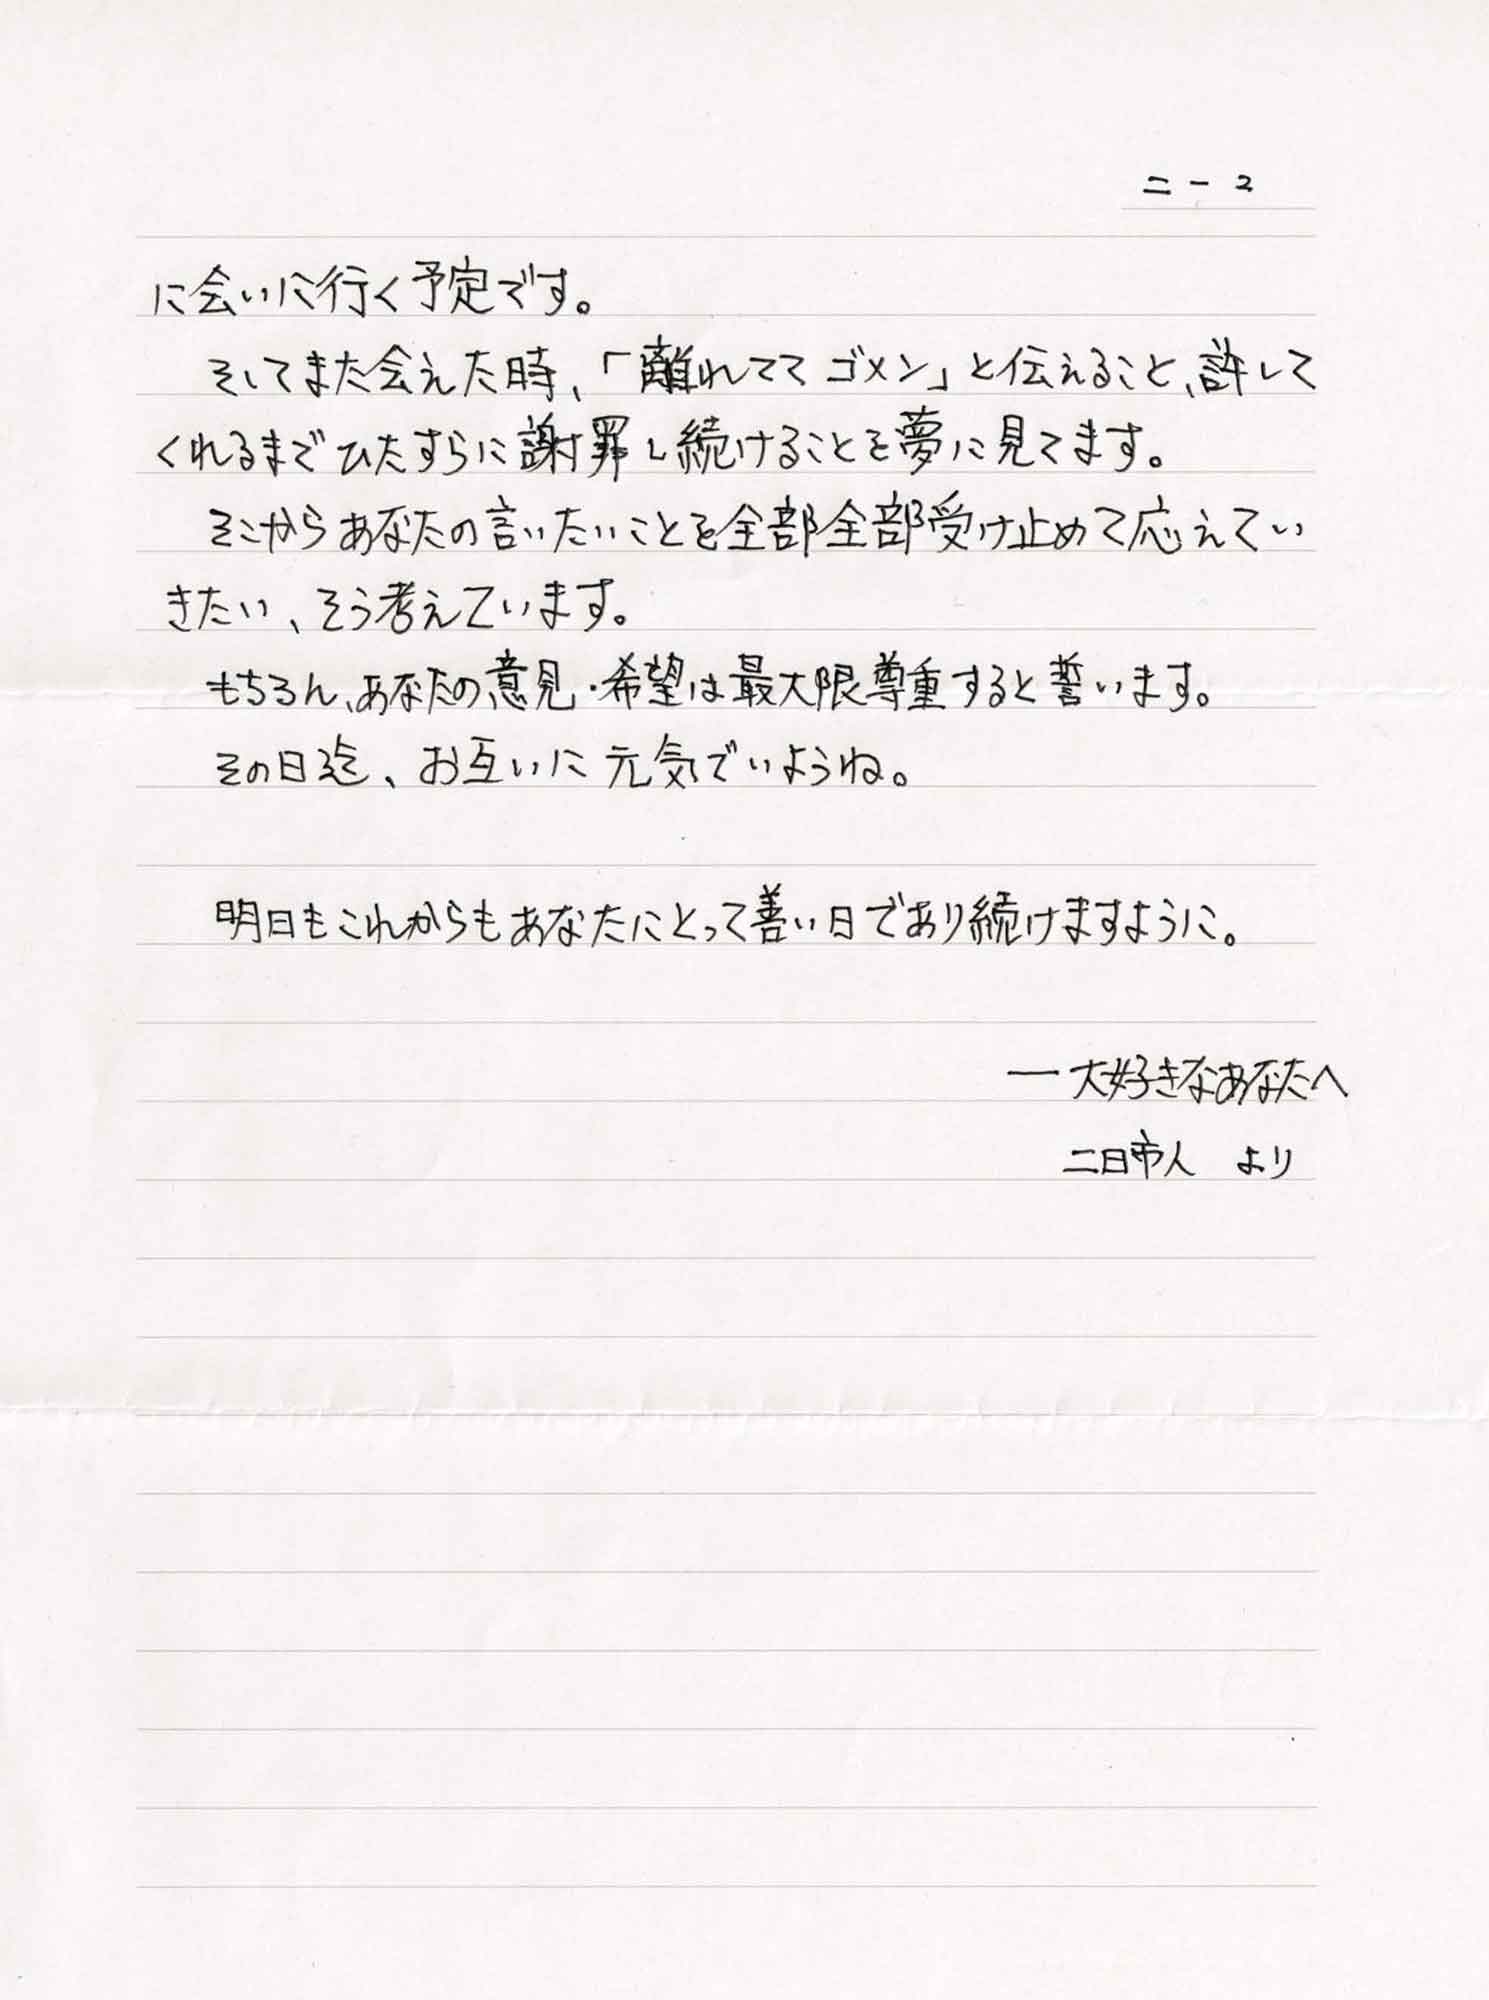 二 - 2
に会いに行く予定です。
そしてまた会えた時、「離れてて ゴメン」と伝えること、許して
くれるまでひたすらに謝罪し続けることを夢に見てます。
そこからあなたの言いたいことを全部全部受け止めて応えてい
きたい、そう考えています。
もちろん、あなたの意見・希望は最大限尊重すると誓います。
その日迄、お互いに元気でいようね。
明日もこれからもあなたにとって善い日であり続けますように。
― 大好きなあなたへ
二日市人 より